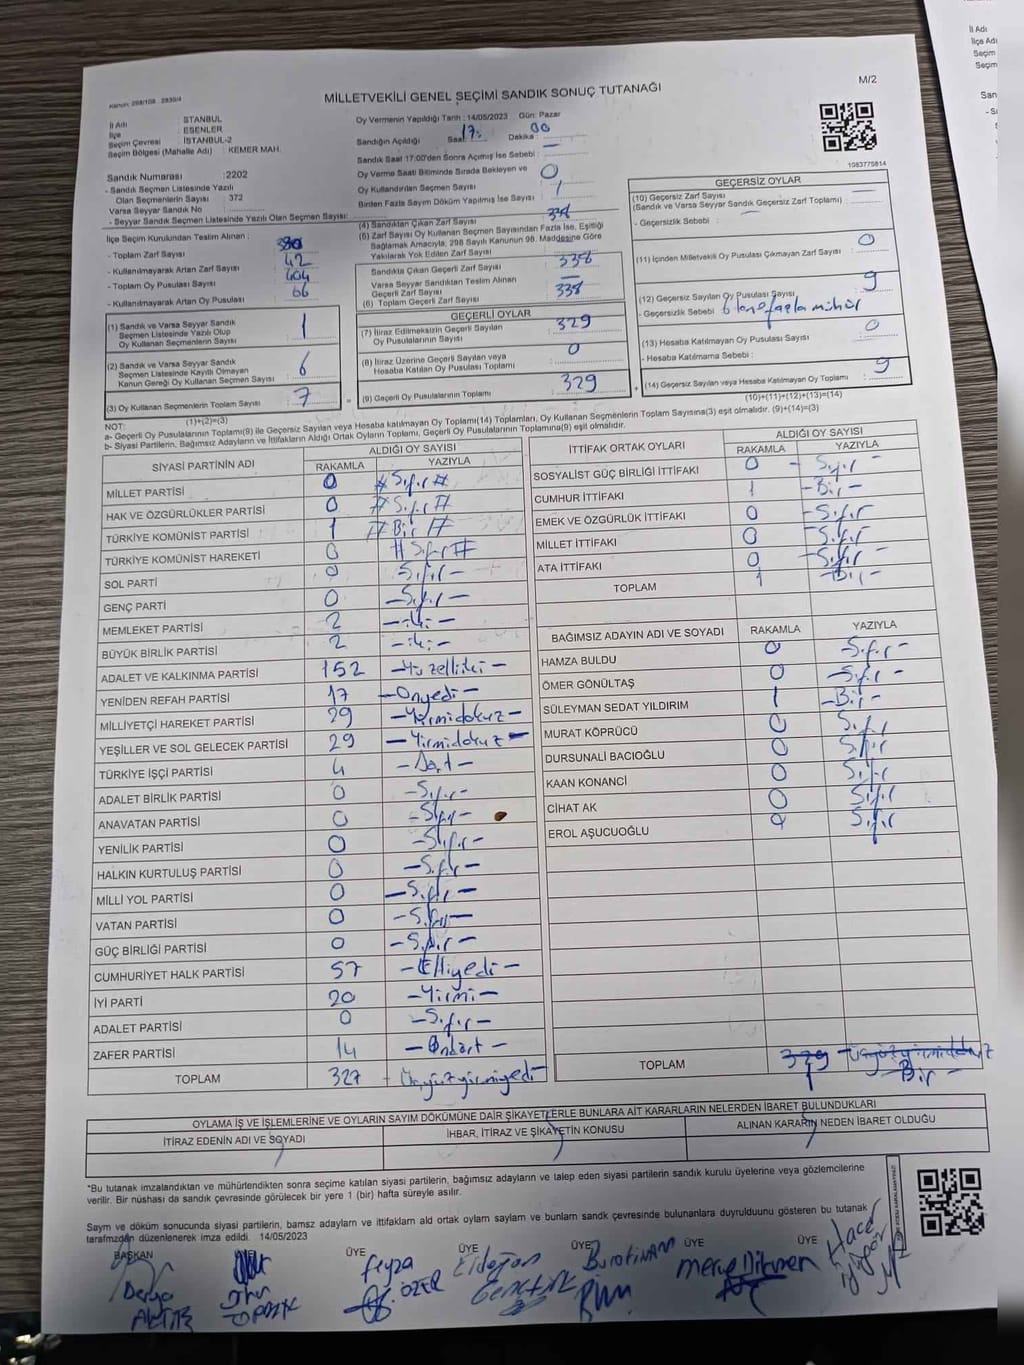 Kanun: 298/108 2839/4
MİLLETVEKİLİ GENEL SEÇİMİ SANDIK SONUÇ TUTANAĞI
M/2
İl Adı İSTANBUL
İlçe ESENLER
Seçim Çevresi İSTANBUL-2
Seçim Bölgesi (Mahalle Adı) : KEMER MAH.
Oy Vermenin Yapıldığı Tarih : 14/05/2023 Gün: Pazar
Sandığın Açıldığı Saat : 17: Dakika : 00
Sandık Saat 17:00'den Sonra Açılmış İse Sebebi :
Oy Verme Saati Bitiminde Sırada Bekleyen ve
Oy Kullandırılan Seçmen Sayısı : 0
Birden Fazla Sayım Döküm Yapılmış İse Sayısı : 1
1083775814
Sandık Numarası : 2202
- Sandık Seçmen Listesinde Yazılı
Olan Seçmenlerin Sayısı : 372
Varsa Seyyar Sandık No :
- Seyyar Sandık Seçmen Listesinde Yazılı Olan Seçmen Sayısı:
İlçe Seçim Kurulundan Teslim Alınan :
- Toplam Zarf Sayısı : 380
- Kullanılmayarak Artan Zarf Sayısı : 42
- Toplam Oy Pusulası Sayısı : 404
- Kullanılmayarak Artan Oy Pusulası : 66
(1) Sandık ve Varsa Seyyar Sandık
Seçmen Listesinde Yazılı Olup
Oy Kullanan Seçmenlerin Sayısı : 1
(2) Sandık ve Varsa Seyyar Sandık
Seçmen Listesinde Kayıtlı Olmayan
Kanun Gereği Oy Kullanan Seçmen Sayısı : 6
(3) Oy Kullanan Seçmenlerin Toplam Sayısı : 7
(1)+(2)=(3)
(4) Sandıktan Çıkan Zarf Sayısı : 338
(5) Zarf Sayısı Oy Kullanan Seçmen Sayısından Fazla İse, Eşitliği
Sağlamak Amacıyla, 298 Sayılı Kanunun 98. Maddesine Göre
Yakılarak Yok Edilen Zarf Sayısı :
Sandıkta Çıkan Geçerli Zarf Sayısı : 338
Varsa Seyyar Sandıktan Teslim Alınan
Geçerli Zarf Sayısı :
(6) Toplam Geçerli Zarf Sayısı : 338
GEÇERLİ OYLAR
(7) İtiraz Edilmeksizin Geçerli Sayılan
Oy Pusulalarının Sayısı : 329
(8) İtiraz Üzerine Geçerli Sayılan veya
Hesaba Katılan Oy Pusulası Toplamı : 0
(9) Geçerli Oy Pusulalarının Toplamı : 329
GEÇERSİZ OYLAR
(10) Geçersiz Zarf Sayısı :
(Sandık ve Varsa Seyyar Sandık Geçersiz Zarf Toplamı)
- Geçersizlik Sebebi :
(11) İçinden Milletvekili Oy Pusulası Çıkmayan Zarf Sayısı : 0
(12) Geçersiz Sayılan Oy Pusulası Sayısı : 9
- Geçersizlik Sebebi : 6 tane fazla mühür
(13) Hesaba Katılmayan Oy Pusulası Sayısı : 0
- Hesaba Katılmama Sebebi :
(14) Geçersiz Sayılan veya Hesaba Katılmayan Oy Toplamı : 9
(10)+(11)+(12)+(13)=(14)
NOT:
a- Geçerli Oy Pusulalarının Toplamı(9) ile Geçersiz Sayılan veya Hesaba katılmayan Oy Toplamı(14) Toplamları, Oy Kullanan Seçmenlerin Toplam Sayısına(3) eşit olmalıdır. (9)+(14)=(3)
b- Siyasi Partilerin, Bağımsız Adayların ve İttifakların Aldığı Ortak Oyların Toplamı, Geçerli Oy Pusulalarının Toplamına(9) eşit olmalıdır.
SİYASİ PARTİNİN ADI ALDIĞI OY SAYISI
RAKAMLA YAZIYLA
MİLLET PARTİSİ 0 # Sıfır #
HAK VE ÖZGÜRLÜKLER PARTİSİ 0 # Sıfır #
TÜRKİYE KOMÜNİST PARTİSİ 1 # Bir #
TÜRKİYE KOMÜNİST HAREKETİ 0 # Sıfır #
SOL PARTİ 0 Sıfır -
GENÇ PARTİ 0 - Sıfır -
MEMLEKET PARTİSİ 2 - iki -
BÜYÜK BİRLİK PARTİSİ 2 - iki -
ADALET VE KALKINMA PARTİSİ 152 - Yüzelliiki -
YENİDEN REFAH PARTİSİ 17 - Onyedi -
MİLLİYETÇİ HAREKET PARTİSİ 29 - Yirmidokuz -
YEŞİLLER VE SOL GELECEK PARTİSİ 29 - Yirmidokuz -
TÜRKİYE İŞÇİ PARTİSİ 4 - Dört -
ADALET BİRLİK PARTİSİ 0 - Sıfır -
ANAVATAN PARTİSİ 0 - Sıfır -
YENİLİK PARTİSİ 0 - Sıfır -
HALKIN KURTULUŞ PARTİSİ 0 - Sıfır -
MİLLİ YOL PARTİSİ 0 - Sıfır -
VATAN PARTİSİ 0 - Sıfır -
GÜÇ BİRLİĞİ PARTİSİ 0 - Sıfır -
CUMHURİYET HALK PARTİSİ 57 - Elliyedi -
İYİ PARTİ 20 - Yirmi -
ADALET PARTİSİ 0 - Sıfır -
ZAFER PARTİSİ 14 - Ondört -
TOPLAM 327 - Üçyüzyirmiyedi -
İTTİFAK ORTAK OYLARI ALDIĞI OY SAYISI
RAKAMLA YAZIYLA
SOSYALİST GÜÇ BİRLİĞİ İTTİFAKI 0 - Sıfır -
CUMHUR İTTİFAKI 1 - Bir -
EMEK VE ÖZGÜRLÜK İTTİFAKI 0 - Sıfır
MİLLET İTTİFAKI 0 - Sıfır
ATA İTTİFAKI 0 - Sıfır
TOPLAM 1 - Bir -
BAĞIMSIZ ADAYIN ADI VE SOYADI RAKAMLA YAZIYLA
HAMZA BULDU 0 Sıfır -
ÖMER GÖNÜLTAŞ 0 - Sıfır -
SÜLEYMAN SEDAT YILDIRIM 1 - Bir -
MURAT KÖPRÜCÜ 0 Sıfır
DURSUNALİ BACIOĞLU 0 Sıfır
KAAN KONANCİ 0 Sıfır
CİHAT AK 0 Sıfır
EROL AŞUCUOĞLU 0 Sıfır
TOPLAM 329 - Üçyüzyirmidokuz
1 - Bir -
OYLAMA İŞ VE İŞLEMLERİNE VE OYLARIN SAYIM DÖKÜMÜNE DAİR ŞİKAYETLERLE BUNLARA AİT KARARLARIN NELERDEN İBARET BULUNDUKLARI
İTİRAZ EDENİN ADI VE SOYADI İHBAR, İTİRAZ VE ŞİKAYETİN KONUSU ALINAN KARARIN NEDEN İBARET OLDUĞU
*Bu tutanak imzalandıktan ve mühürlendikten sonra seçime katılan siyasi partilerin, bağımsız adayların ve talep eden siyasi partilerin sandık kurulu üyelerine veya gözlemcilerine
verilir. Bir nüshası da sandık çevresinde görülecek bir yere 1 (bir) hafta süreyle asılır.
Sayım ve döküm sonucunda siyasi partilerin, bamsz adaylarn ve ittifaklarn ald ortak oylarn saylarn ve bunlarn sandk çevresinde bulunanlara duyrulduunu gösteren bu tutanak
tarafmzdan düzenlenerek imza edildi. 14/05/2023
BAŞKAN ÜYE ÜYE ÜYE ÜYE ÜYE
Derya
Feyza ÖZER
Erdoğan
Burothan
Merve Dikmen
Hacer
İl Adı
İlçe Adı
Seçim
Seçim
San